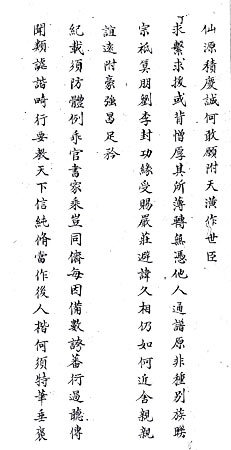 仙源積慶誠何敢願附天潢作世臣
求繫求援或背憎厚其所薄轉無憑他人通譜原非種別族聯
宗祇算朋劉李封功緣受賜嚴莊避諱久相仍如何近舍親親
誼遠附豪強曷足矜
紀載須防體例乖官書家乘豈同儕每因備數誇蕃衍過聽傳
聞類謔諧畸行要教天下信純脩當作後人楷何須特筆垂褒